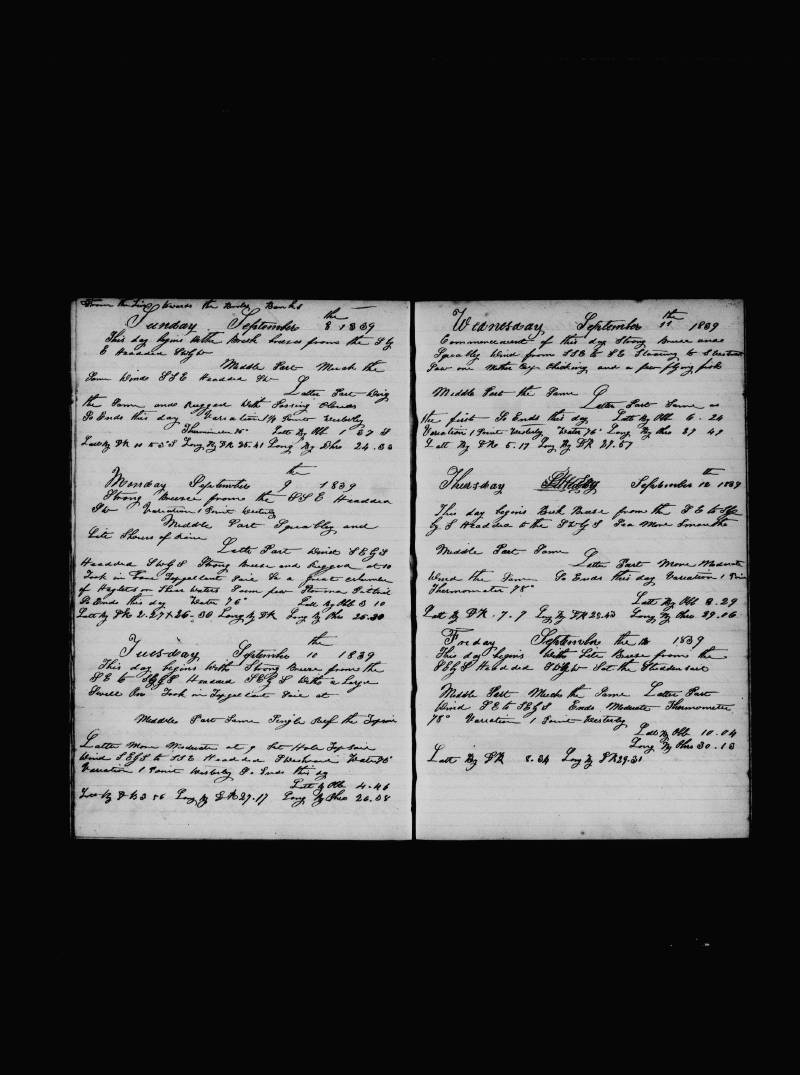 From the towards the Banks
Sunday September 8th 1839
This day begins With Brisk breeze from the S by
E Headded SWbyW
Middle Part Much the
Same Winds SSE Headded SW
Latter Part Wind
the Same ends Rugged With Passing Clouds
So Ends this day Variation 1/4 Point Westerly
Thermometer 75° Latt By Obb 37 S
Latt By DR Long By DR 25.41 Long By Chro 24.33
Monday September 9th 1839
Strong Breeze from the SSE Headded
SW Variation 1 Point Westerly
Middle Part Squally and
Lite Showers of Raine
Latter Part Wind SEbyS
Headded SWbyS Strong Breeze and Rugged at 10
Took in Fore Topgallant Saile a great number
of
So Ends this day Water 76° Latt By Obb 3 10
Latt By DR 2.27 26.36 Long By DR Long By Chro 25.20
Tuesday September 10th 1839
This day begins With Strong Breeze from the
SE to SEbyS Headed SEbyS With a Large
Swell On Took in Topgallant Saile at
Middle Part Same Single Reef the Topsaile
Latter More Moderate at 9 Set Hole Topsaile
Wind SEbyS to SSE Headded SWestward Water 75°
Variation 1 Point Westerly So Ends this day
Latt By Obb 4.46
Latt By DR 3 56 Long By DR 27.17 Long By Chro 26.58
Wednesday September 11th 1839
Commencement of this day Strong Breeze and
Squally Wind from SSE to SE Stearing to SWestward
Saw one Mother Careys Chicking and a few flying fish
Middle Part the Same
Latter Part Same as
the first So Ends this day Latt By Obb 6.24
Variation 1 Point Westerly Water 76° Long By Chro 27 49
Latt By DR 5.17 Long By DR 27.57
Thursday September 12th 1839
This day begins Brisk Breeze from the SE to SE
by S Headded to the SWbyS Sea More Smoothe
Middle Part Same
Latter Part More Moderate
Wind the Same So Ends this day Variation 1 Point
Thermometer 78°
Latt By Obb 8.29
Latt By DR. 7.7 Long By DR 28.43 Long By Chro 29.06
Friday September the 13 1839
This day begins With Lite Breeze from the
SEbyS Headded SWbyW Set the Studdensail
Middle Part Much the Same Latter Part
Wind SE to SEbyS Ends Moderate Thermometer
78° Variation 1 Point Westerly
Latt By Obb 10.04
Long By Chro 30.13
Latt By DR 8.34 Long By DR 29.31